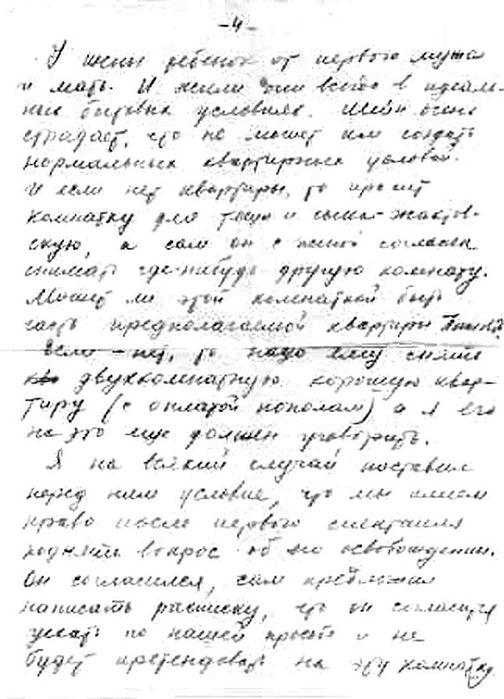 -4-
У жены ребенок от первого мужа
и мать. И жили они всегда в идеаль-
ных бытовых условиях. Шейн очень
страдает, что не может им создать
нормальных квартирных условий.
И если нет квартиры, то просит
комнатку для тещи и сына - жактов-
скую, а сам он с женой согласен
снимать где-нибудь другую комнату.
Может ли этой комнаткой быть
часть предполагаемой квартиры
Если - нет, то надо ему снять
двухкомнатную хорошую квар-
тиру (с оплатой пополам) а я его
на это еще должен уговорить.
Я на всякий случай поставил
перед ним условие, что мы имеем
право после первого спектакля
поднять вопрос об его освобождении.
Он согласился, сам предложил
написать расписку, что он согласится
уехать по нашей просьбе и не
будет претендовать на эту комнатку